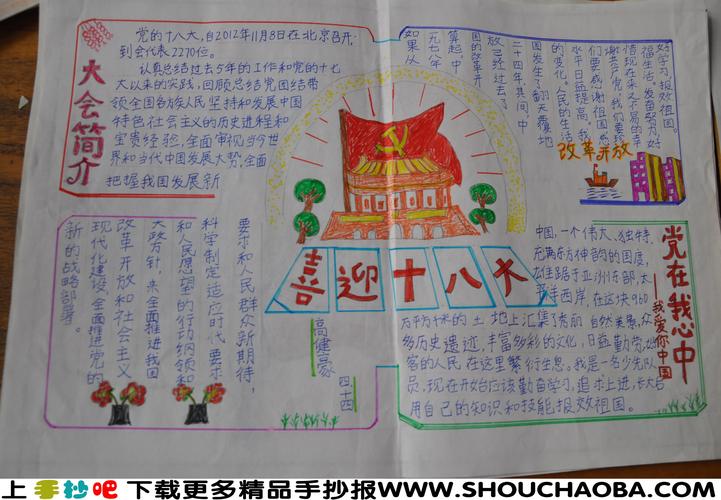 大会简介
党的十八大,自2012年11月8日在北京召开,
到会代表2270位。
认真总结过去5年的工作和党的十七
大以来的实践,回顾总结党团结带
领全国各族人民坚持和发展中国
特色社会主义的历史进程和
宝贵经验,全面审视当今世
界和当代中国发展大势,全面
把握我国发展新
要求和人民群众新期待,
科学制定适应时代要求
和人民愿望的行动纲领和
大政方针,来全面推进我国
改革开放和社会主义
现代化建设、全面推进党的
新的战略部署。
如果从
一九七八年
算起中
国的改革开
放已经过去了
三十四年其间,中
国发生了翻天覆地
的变化。人民的生活
水平日益提高。我
们要感谢祖国感
谢共产党,我们要珍
惜现在来之不易的幸
福生活。发奋努力好
好学习,报效祖国。
改革开放
喜迎十八大
高健豪
四十四
党在我心中
——我爱你中国
中国,一个伟大、独特、
充满东方神韵的国度,
在这块960
万平方千米的土地上汇集了秀丽自然美景,众
多历史遗迹,丰富多彩的文化,日益勤劳
的人民在这里繁衍生息。我是一名少先队
员,现在开始应该勤奋学习,追求上进,长大后
用自己的知识和技能,报效祖国。
上 手抄吧 下载更多精品手抄报WWW.SHOUCHAOBA.COM